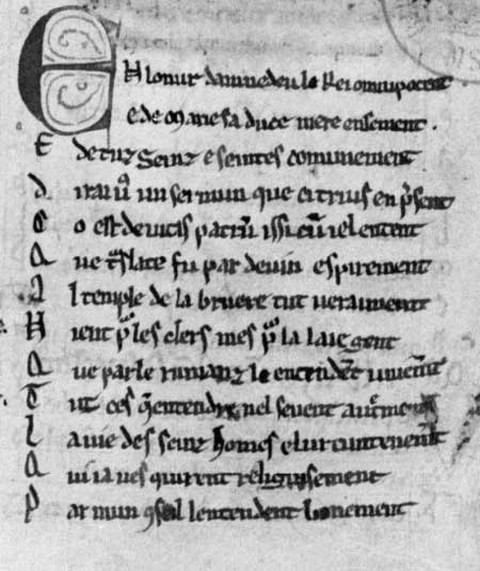 En lonur damnedeu le Rei omnipotent
e de Marie sa duce mere ensement.
E de tuz Seinz e seintes comunement
dirai uꝰ un sermun que ci truis en p̄sent
Co est de uitis patrū issi cū iel entent
Aue t̄slate fu par deuin espirement
Al temple de la bruere tut ueraiment
Nent pͬ les clers mes pͬ la laie gent
Que parle rumanz le entendēt uniemēt
Tut ces q̄ entendre nel seuent aut̄ment
la uie des seinz homes e lur cuntenemēt
Qui ia ues quirent religiusement
Par mun ꝯseil lentendent bonement